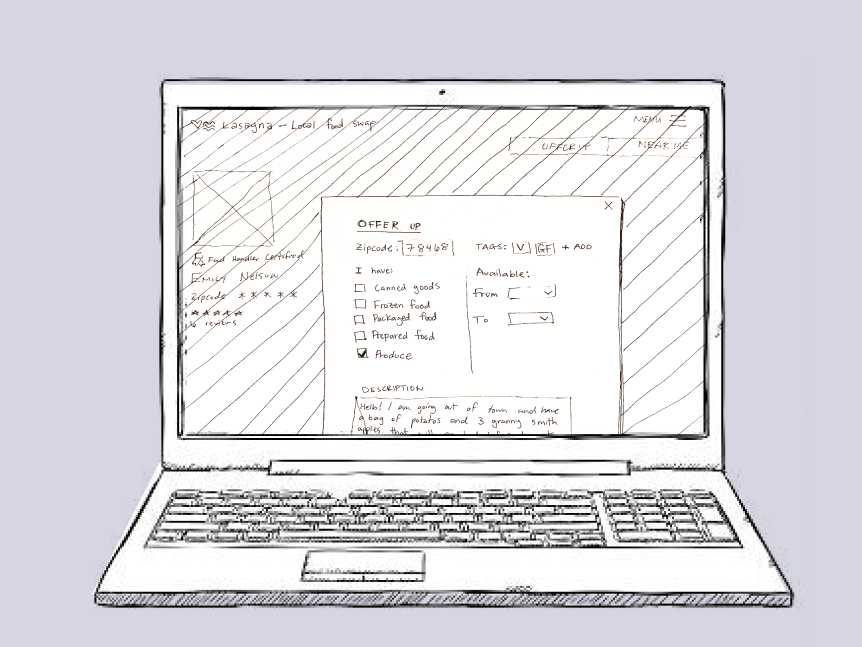 Lasagna - Local food swap
MENU
OFFER UP
NEAR ME
Food Handler Certified
Emily Nelson
Zipcode * * * * *
reviews
X
OFFER UP
Zipcode: 78468
TAGS: V GF + ADD
I have:
Canned goods
Frozen food
Packaged food
Prepared food
Produce
Available:
From
To
DESCRIPTION
Hello! I am going out of town and have
a bag of potatos and 3 granny smith
apples that will